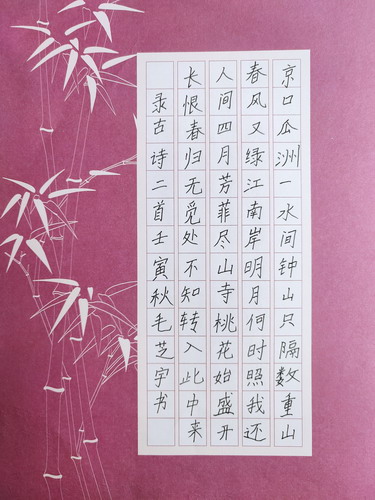 京口瓜洲一水间钟山只隔数重山
春风又绿江南岸明月何时照我还
人间四月芳菲尽山寺桃花始盛开
长恨春归无觅处不知转入此中来
录古诗二首壬寅秋毛芝宇书